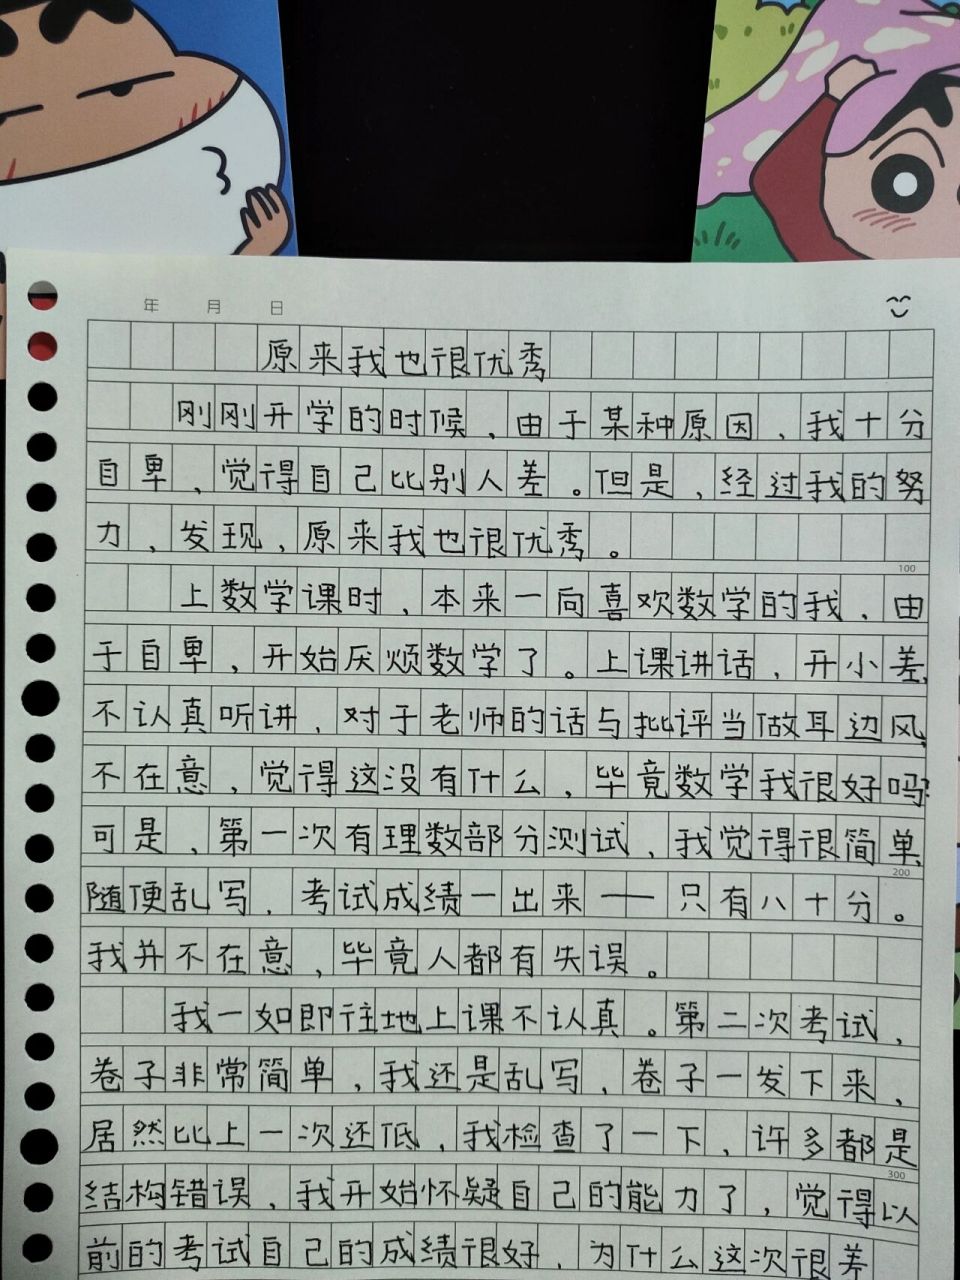 年 月 日
原来我也很优秀
刚刚开学的时候，由于某种原因，我十分
自卑，觉得自己比别人差。但是，经过我的努
力，发现，原来我也很优秀。
100
上数学课时，本来一向喜欢数学的我，由
于自卑，开始厌烦数学了。上课讲话，开小差，
不认真听讲，对于老师的话与批评当做耳边风，
不在意，觉得这没有什么，毕竟数学我很好吗？
可是，第一次有理数部分测试，我觉得很简单，
200
随便乱写，考试成绩一出来——只有八十分。
我并不在意，毕竟人都有失误。
我一如即往地上课不认真。第二次考试，
卷子非常简单，我还是乱写，卷子一发下来，
居然比上一次还低，我检查了一下，许多都是
300
结构错误，我开始怀疑自己的能力了，觉得以
前的考试自己的成绩很好，为什么这次很差